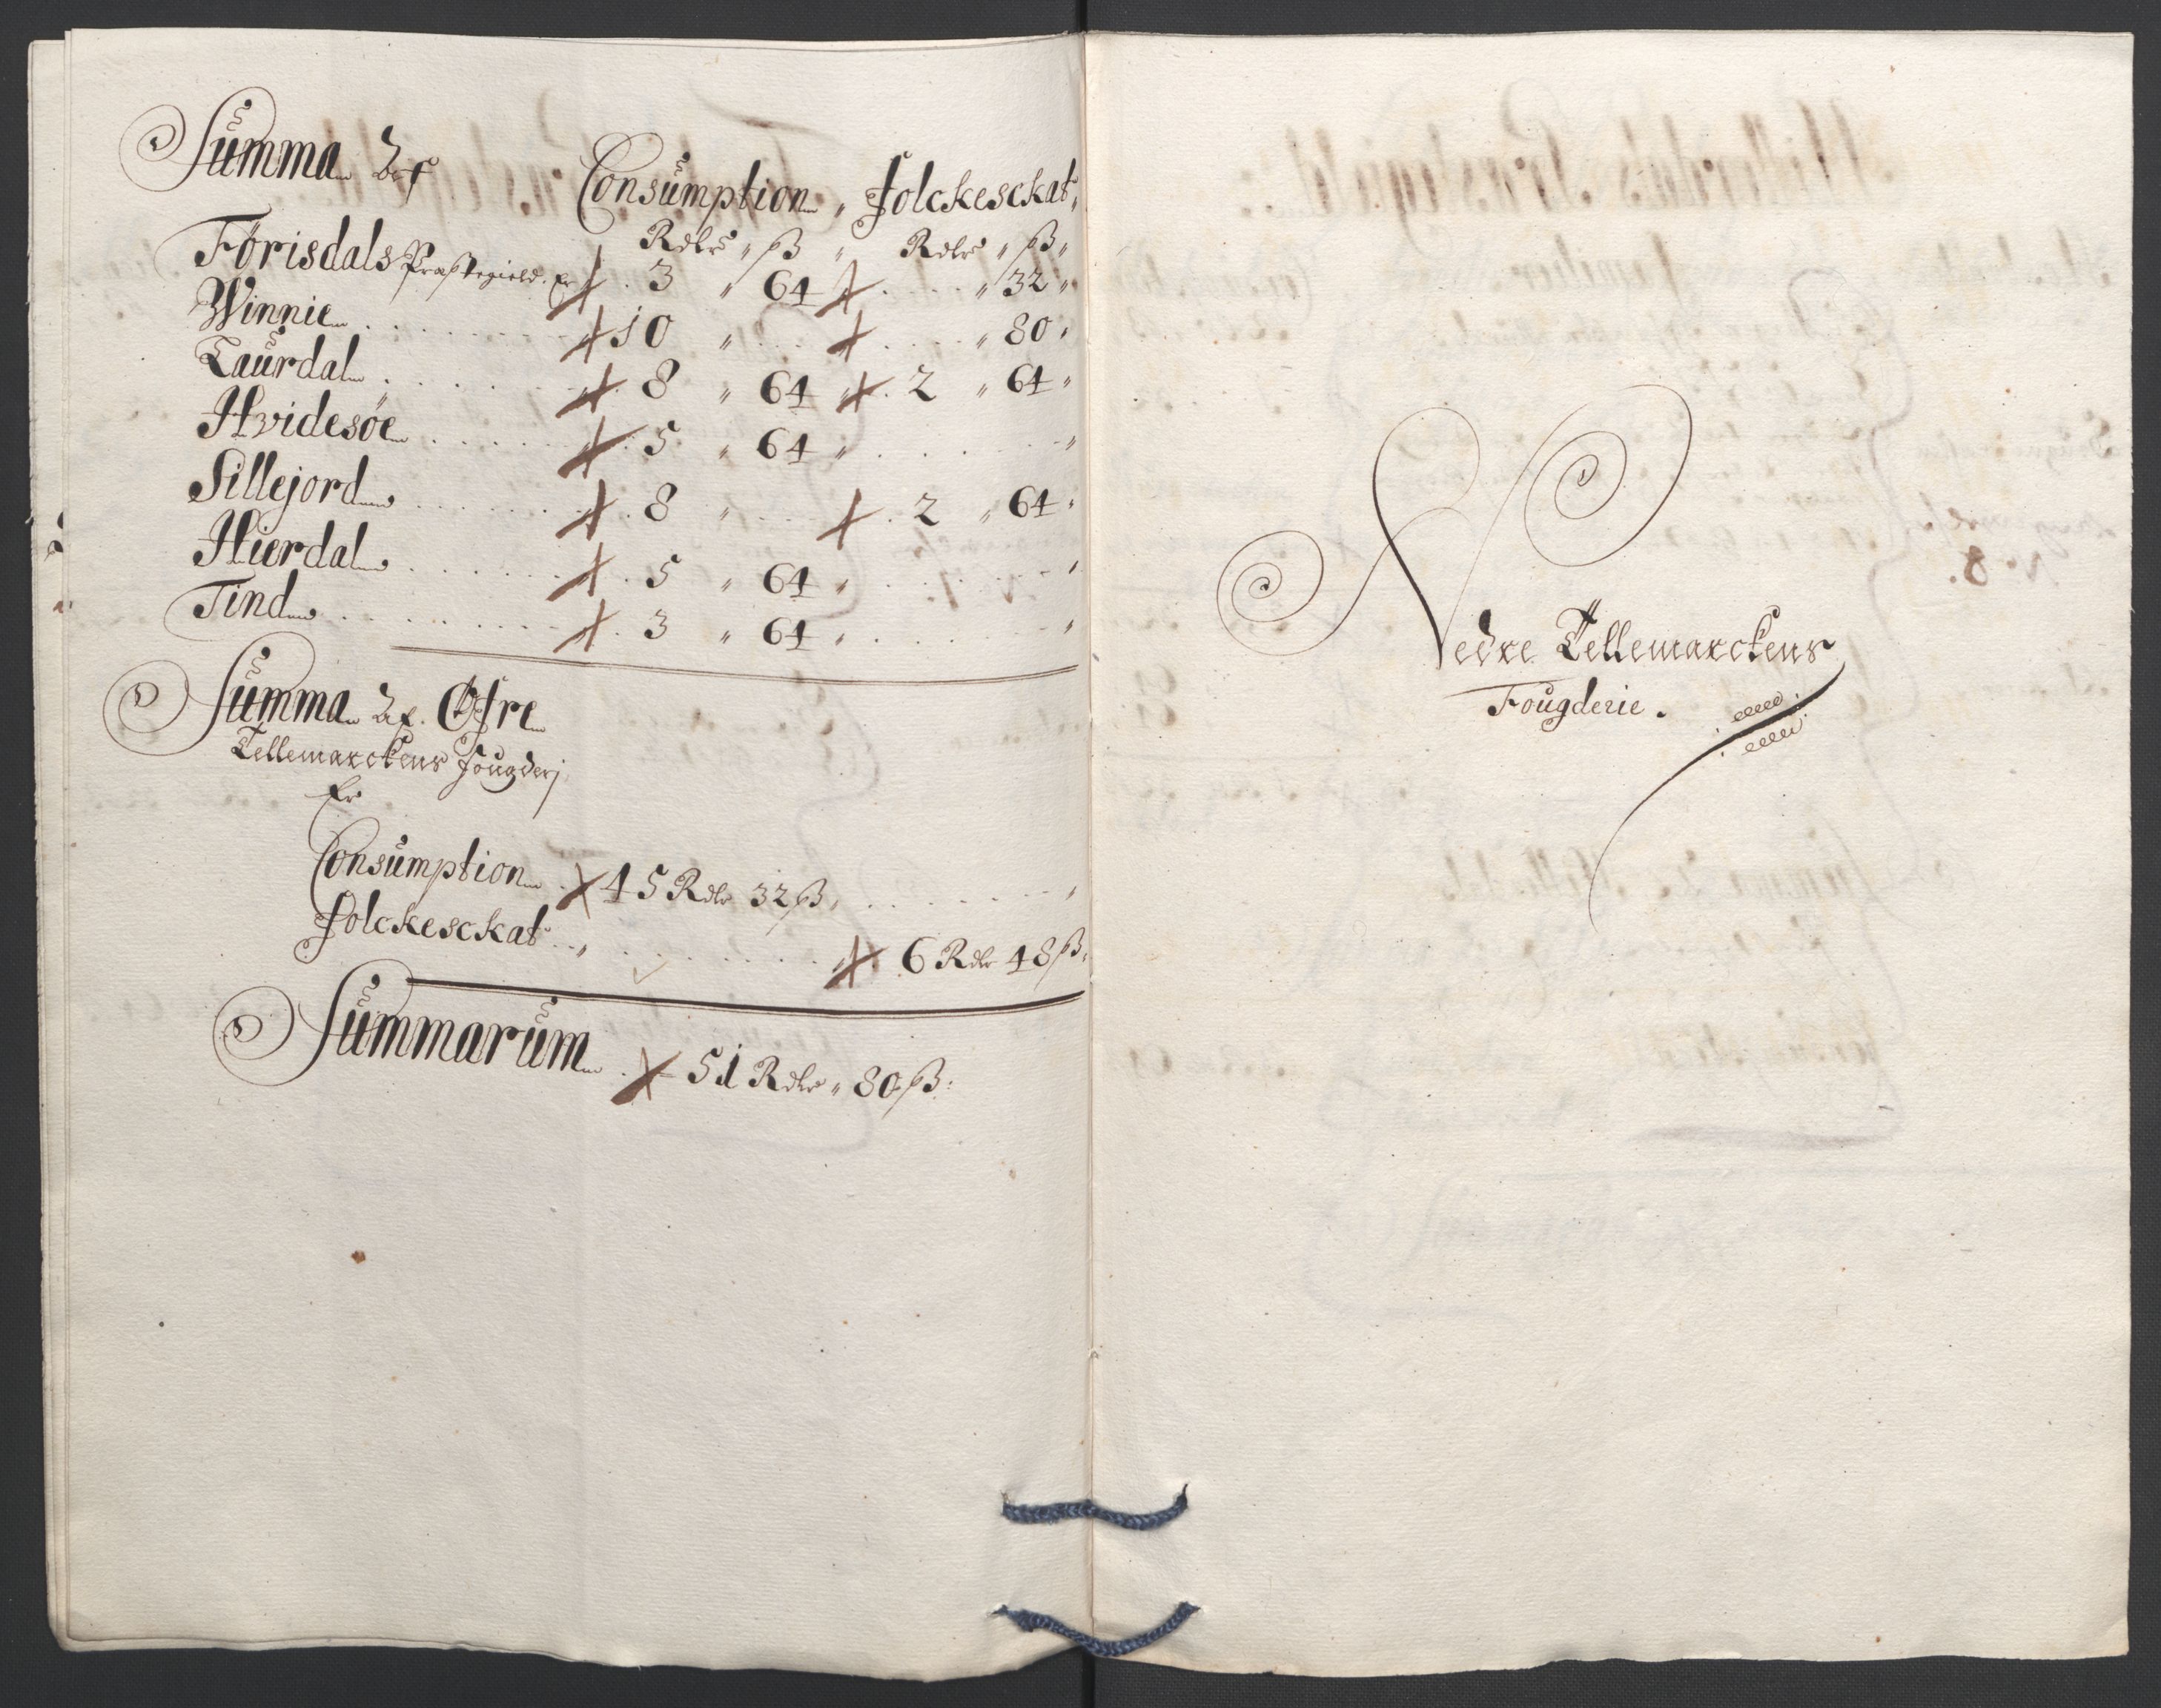 Summa Af Consumption, Folckesckat,
Rdlr " ß " Rdlr " ß "
Förisdals Præstegield. Er . 3 " 64 . . . . " 32 "
Winnie . . . . . . . . 10 " . . . . . . . " 80 "
Laurdal . . . . . . . 8 " 64 " . 2 " 64 "
Hvidesöe . . . . . . 5 " 64 " . . . . . . "
Sillejord . . . . . . . 8 " . . . . . 2 " 64 "
Hierdal . . . . . . . 5 " 64 " . . . . . . "
Tind . . . . . . . . 3 " 64 " . . . . . . "
Summa Af. Öfre
Tellemarckens Fougderj
Er
Consumption . 45 Rdlr 32 ß, . . . . . . . . "
Folckesckat . . " . . . . . . . . 6 Rdlr 48 ß:
Summarum . 51 Rdlr " 80 ß:
Nedre Tellemarckens
Fougderie.